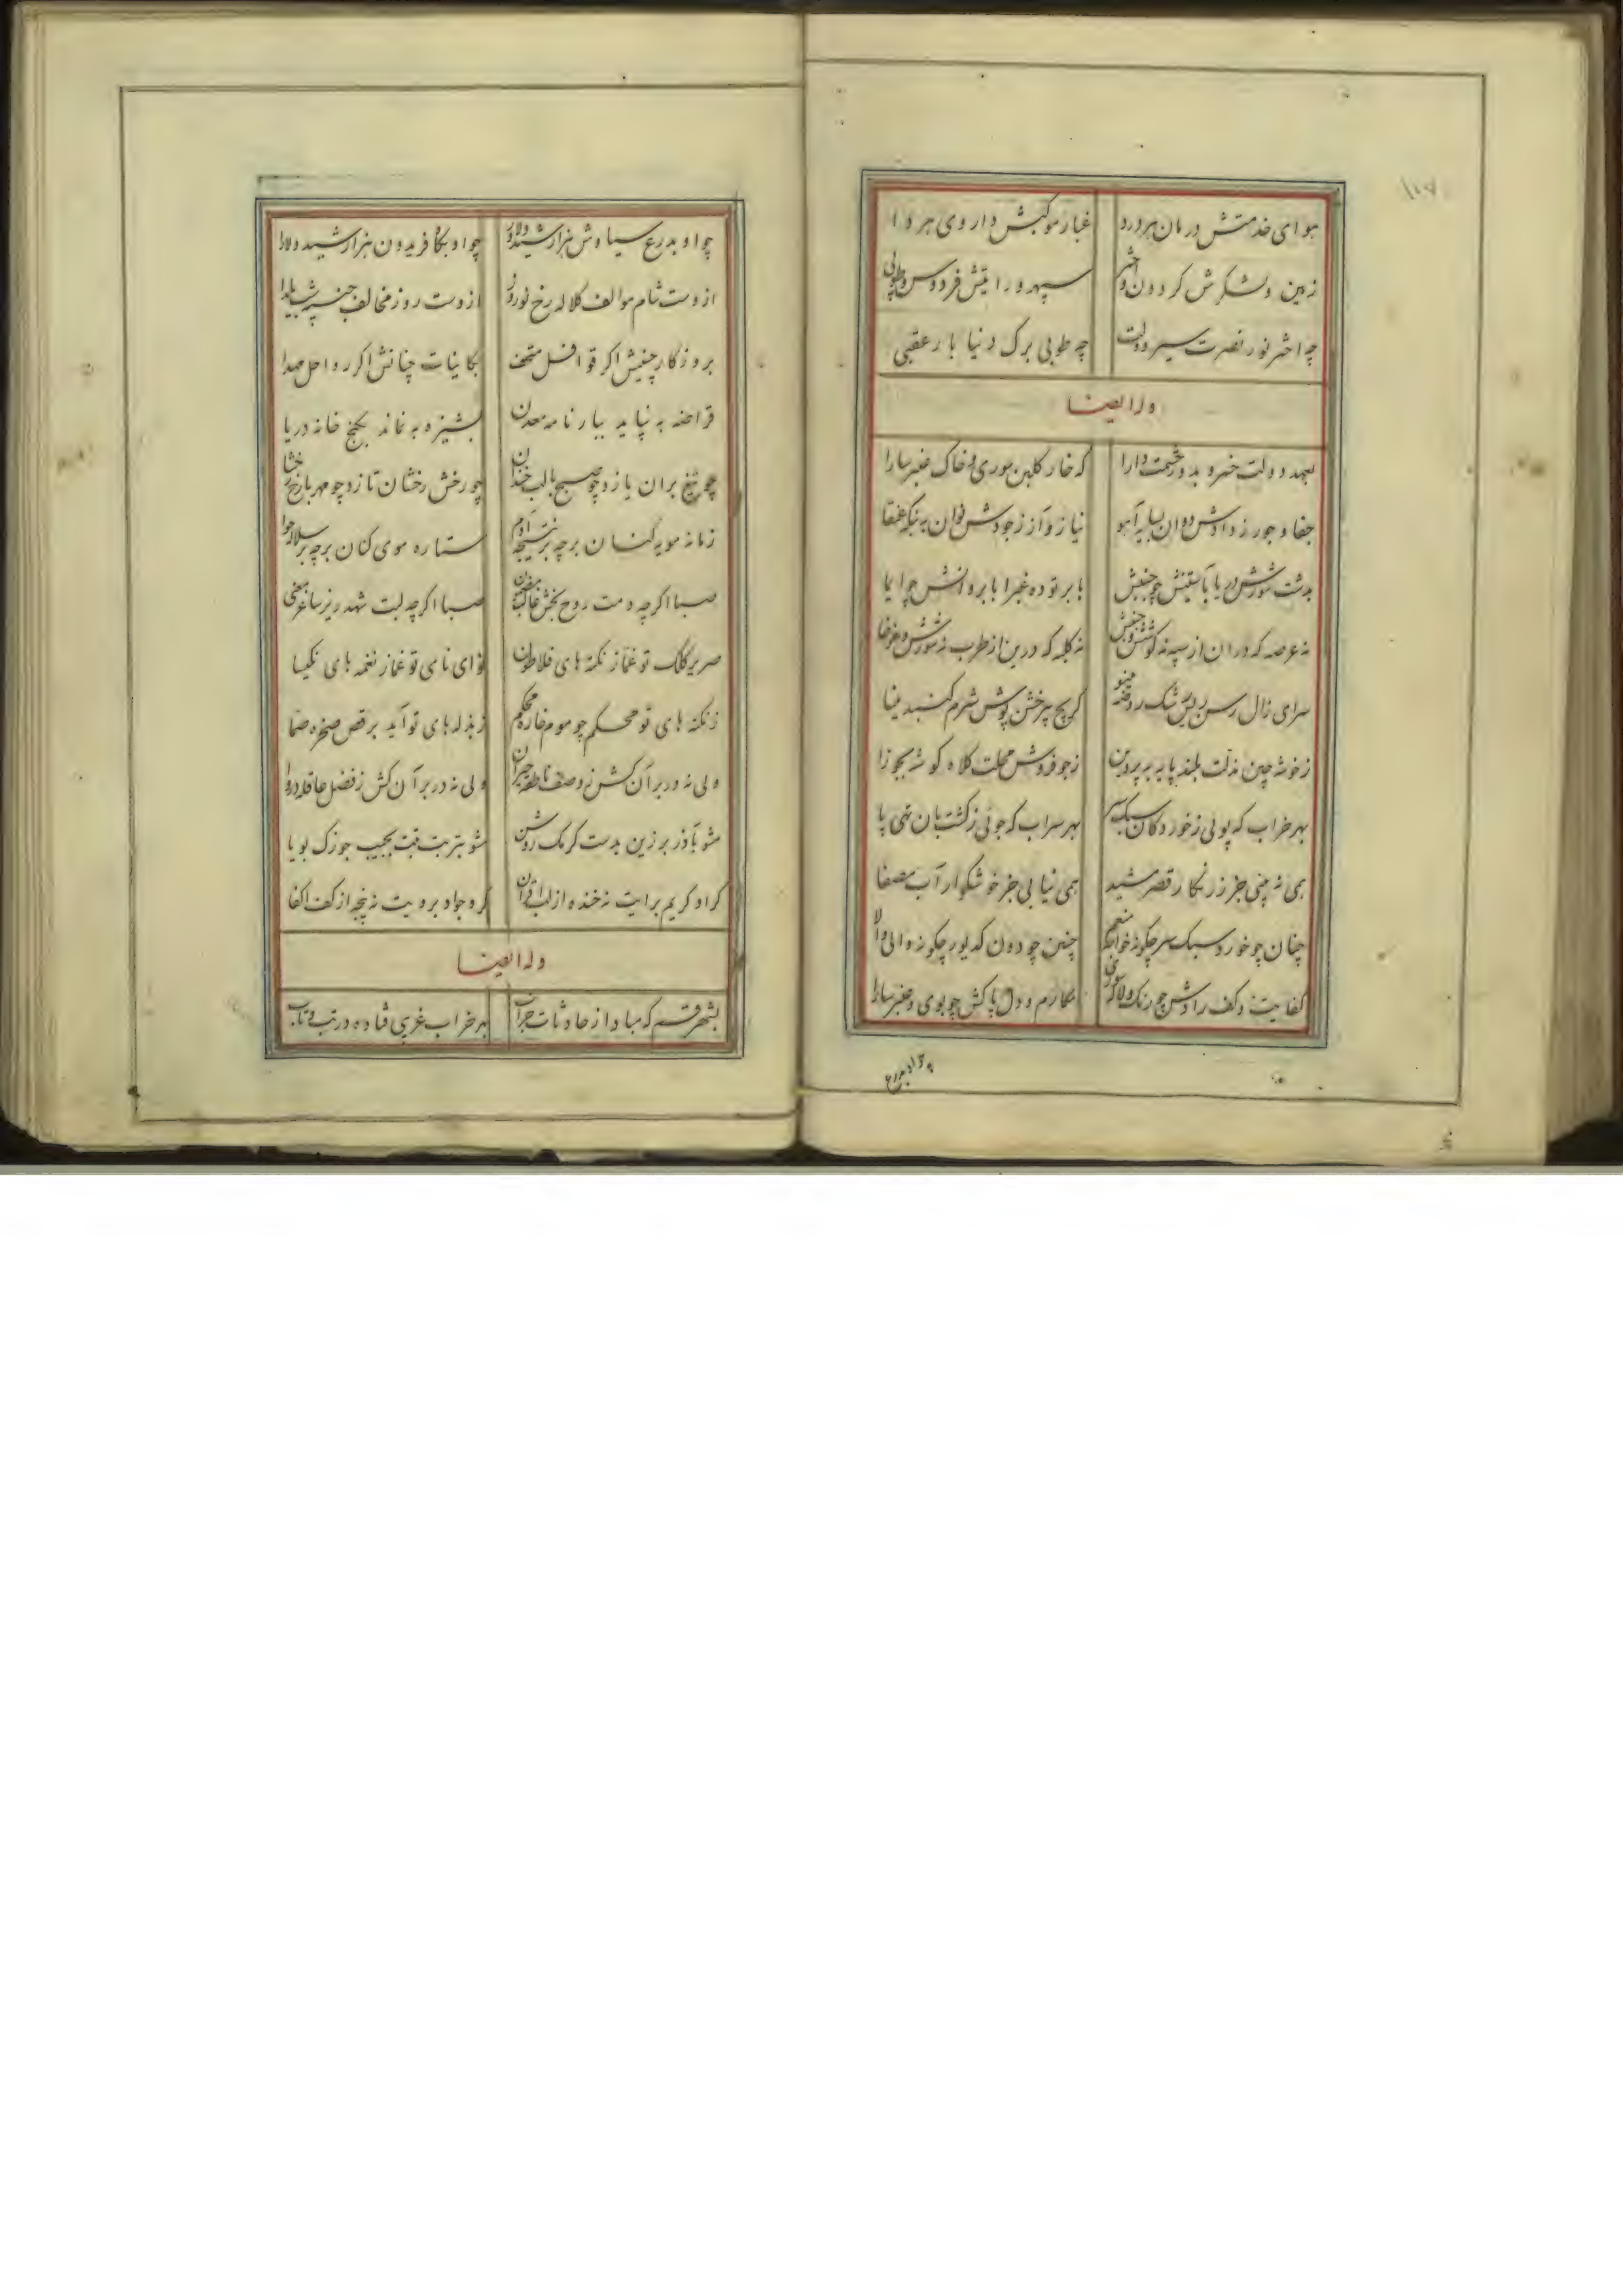 هوای خدمتش درمان هر درد غبار موکبش داروی هر دا
زمین و لشکرش کردون و اختر سپهر و رایتش فردوس و طوبی
چه اختر نور نصرت سیر دولت چه طوبی برک دنیا بار عقبی
وله ایضا
بعهد دولت خسرو بدور حشمت دارا که خار کلبن سوری و خاک عنبر سارا
جفا و جور ز دادش بسایه آهو نیاز و آز ز جودش عنقا
بدشت شورش دریا بآستینش چو جنبش بابر توده غبرا بابروانش چو ایما
نه عرصه که در ان از سپه نه کوشش و جنبش نه کلبه که درین از طرب نه شورش و غوغا
سرای زال رسن ریس رشک روضه مینو کریج پیر خشن پوش شرم کنبد مینا
ز خوشه چین مذلت بلند پایه به پروین ز جو فروش محلت کلاه کوشه بجوزا
بهر خراب که پویی ز خوردکان سبک سر بهر سراب که جوئی ز کشتبان تهی پا
همی نه بینی جز زرنکار قصر مشید همی نیابی جز خوشکوار آب مصفا
چنان چو خورد سبک سر چکونه خواجه منعم چنین چو دون کدیور چکونه والی والا
کفایت و کف رادش چو رنک و لاله سوری مکارم و دل پاکش چو بوی و عنبر سارا
چو او بدرع
چو او بدرع سیاوش هزار شیدو دلاور چو او بکاه فریدون هزار شید و لارا
ازوست شام موالف کلاله رخ نوروز ازوست روز مخالف شب یلدا
بروزکار چنینش اکر قوافل متحف بکاینات چنانش اکر رواحل مهدا
قراضه به نیاید ببارنامه معدن پشیزه به نماند بکنج خانه دریا
چو تیغ بران یازد چو صبح بالب خندان چو رخش رخشان تازد چو مهر با رخ رخشا
زمانه مویه کنان بر چه بر نتیجه آدم ستاره موی کنان بر چه بر سلاله حوا
صبا اکر چه دمت روح بخش صبا اکر چه لبت شهد ریز
صریر کلک تو غماز نکته های فلاطون نوای نای تو غماز نغمه های نکیسا
ز نکته های تو محکم چو موم خاره محکم ز بذله های تو آید برقص صخره صما
ولی نه در بر آن کش ز وصف ناطقه حیران ولی نه در بر آن کش ز فضل عاقله دروا
مشو بآذر برزین بدست کرمک روشن مشو بتربت تبت بجیب جوزک بویا
کر او کریم برایت نه خنده از لب کر و جواد برویت نه پنجه از کف
وله ایضا
بشهر قم که مباد از حادثات خراب بهر خراب غریبی فتاده در تب و تاب